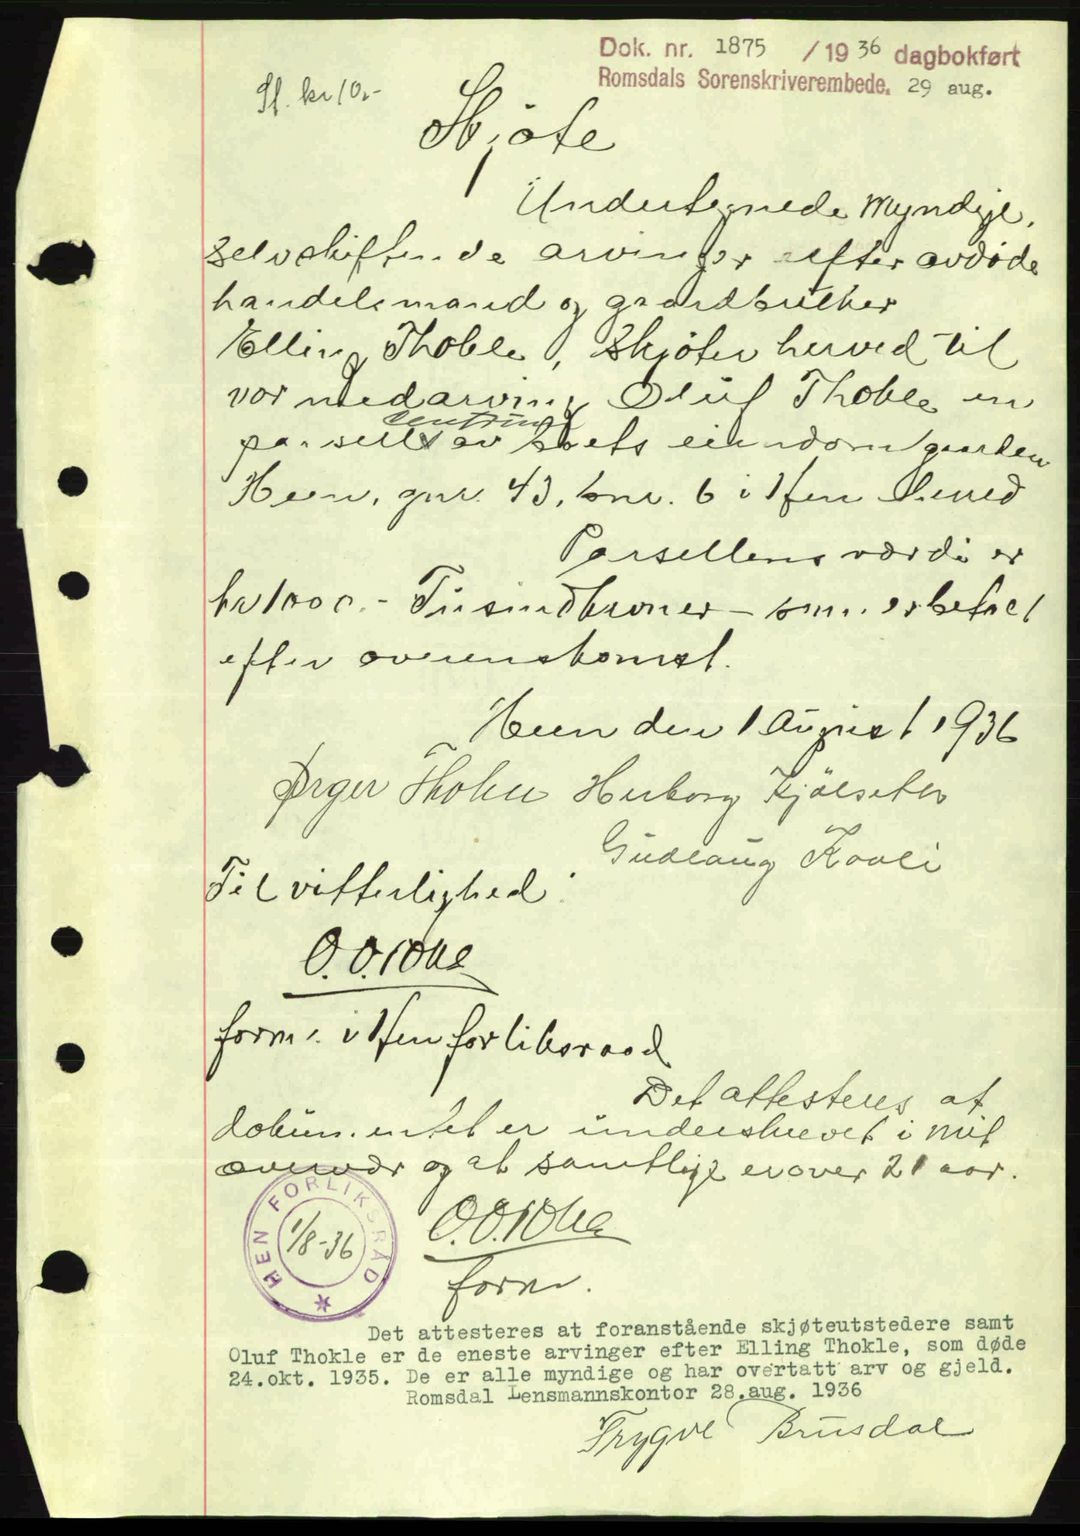 Dok. nr. 1875 / 1936 dagbokført
Romsdals Sorenskriverembede. 29 aug.
kr 10,-
Skjøte
Undertegnede myndige,
selvskiftende arvinger efter avdøde
handelsmand og gaardbruker
Elling Thokle, skjøter herved til
vor medarving Oluf Thokle en
parsell av boets eiendom gaarden
Heen, gnr. 43, bnr. 6 i Hen herred
Parsellens værdi er
kr 1000.- Tusindkroner - som er betalt
efter overenskomst.
Heen den 1 August 1936
Ørger Thokle Herborg Kjølseter
Gudlaug Kavli
Til vitterlighed:
O.O.
form. i Hen forliksraad
Det attesteres at
dokumentet er underskrevet i mit
overvær og at samtlige er over 21 aar.
HEN FORLIKSRÅD
1/8-36
O.O.
form.
Det attesteres at foranstående skjøteutstedere samt
Oluf Thokle er de eneste arvinger efter Elling Thokle, som døde
24.okt. 1935. De er alle myndige og har overtatt arv og gjeld.
Romsdal Lensmannskontor 28.aug. 1936
Trygve Brusdal